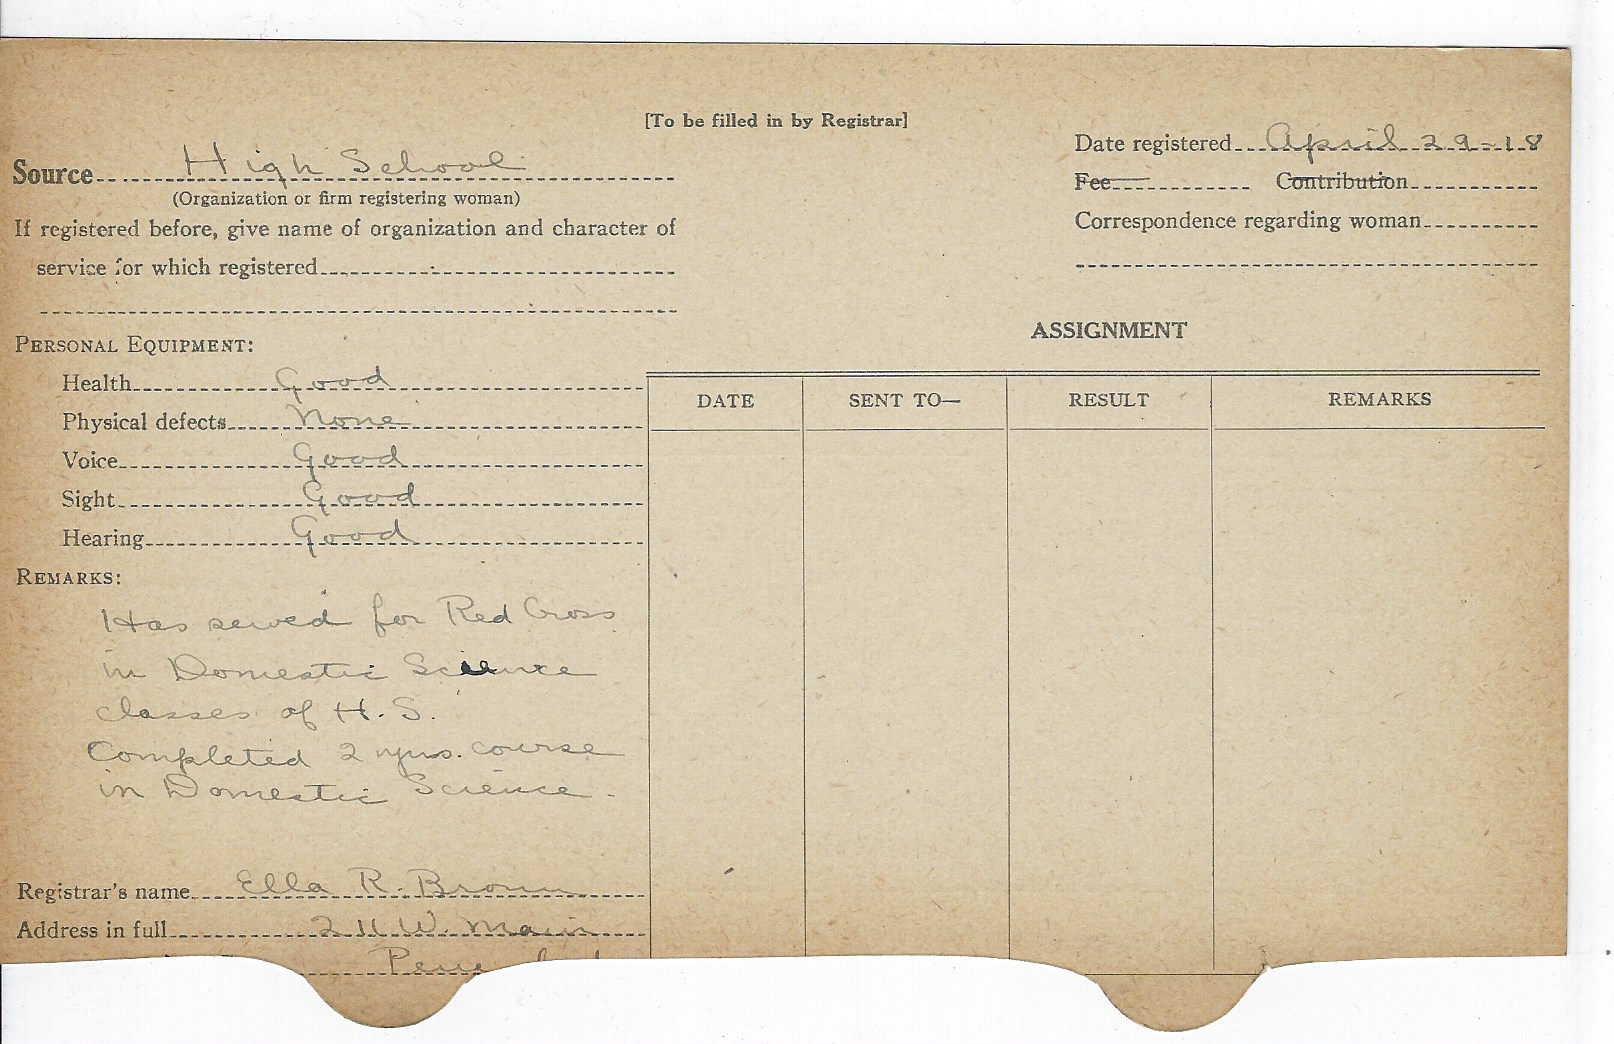 [To be filled in by Registrar]
Date registered April 29-18
Source High School
Fee Contribution
(Organization or firm registering woman)
Correspondence regarding woman
If registered before, give name of organization and character of
service for which registered
ASSIGNMENT
PERSONAL EQUIPMENT:
Health Good
Physical defects None
Voice Good
Sight Good
Hearing Good
DATE SENT TO— RESULT REMARKS
REMARKS:
Has sewed for Red Cross
in Domestic Science
classes of H. S.
Completed 2 yrs. course
in Domestic Science.
Registrar's name Ella R. Brown
Address in full 211 W. Main